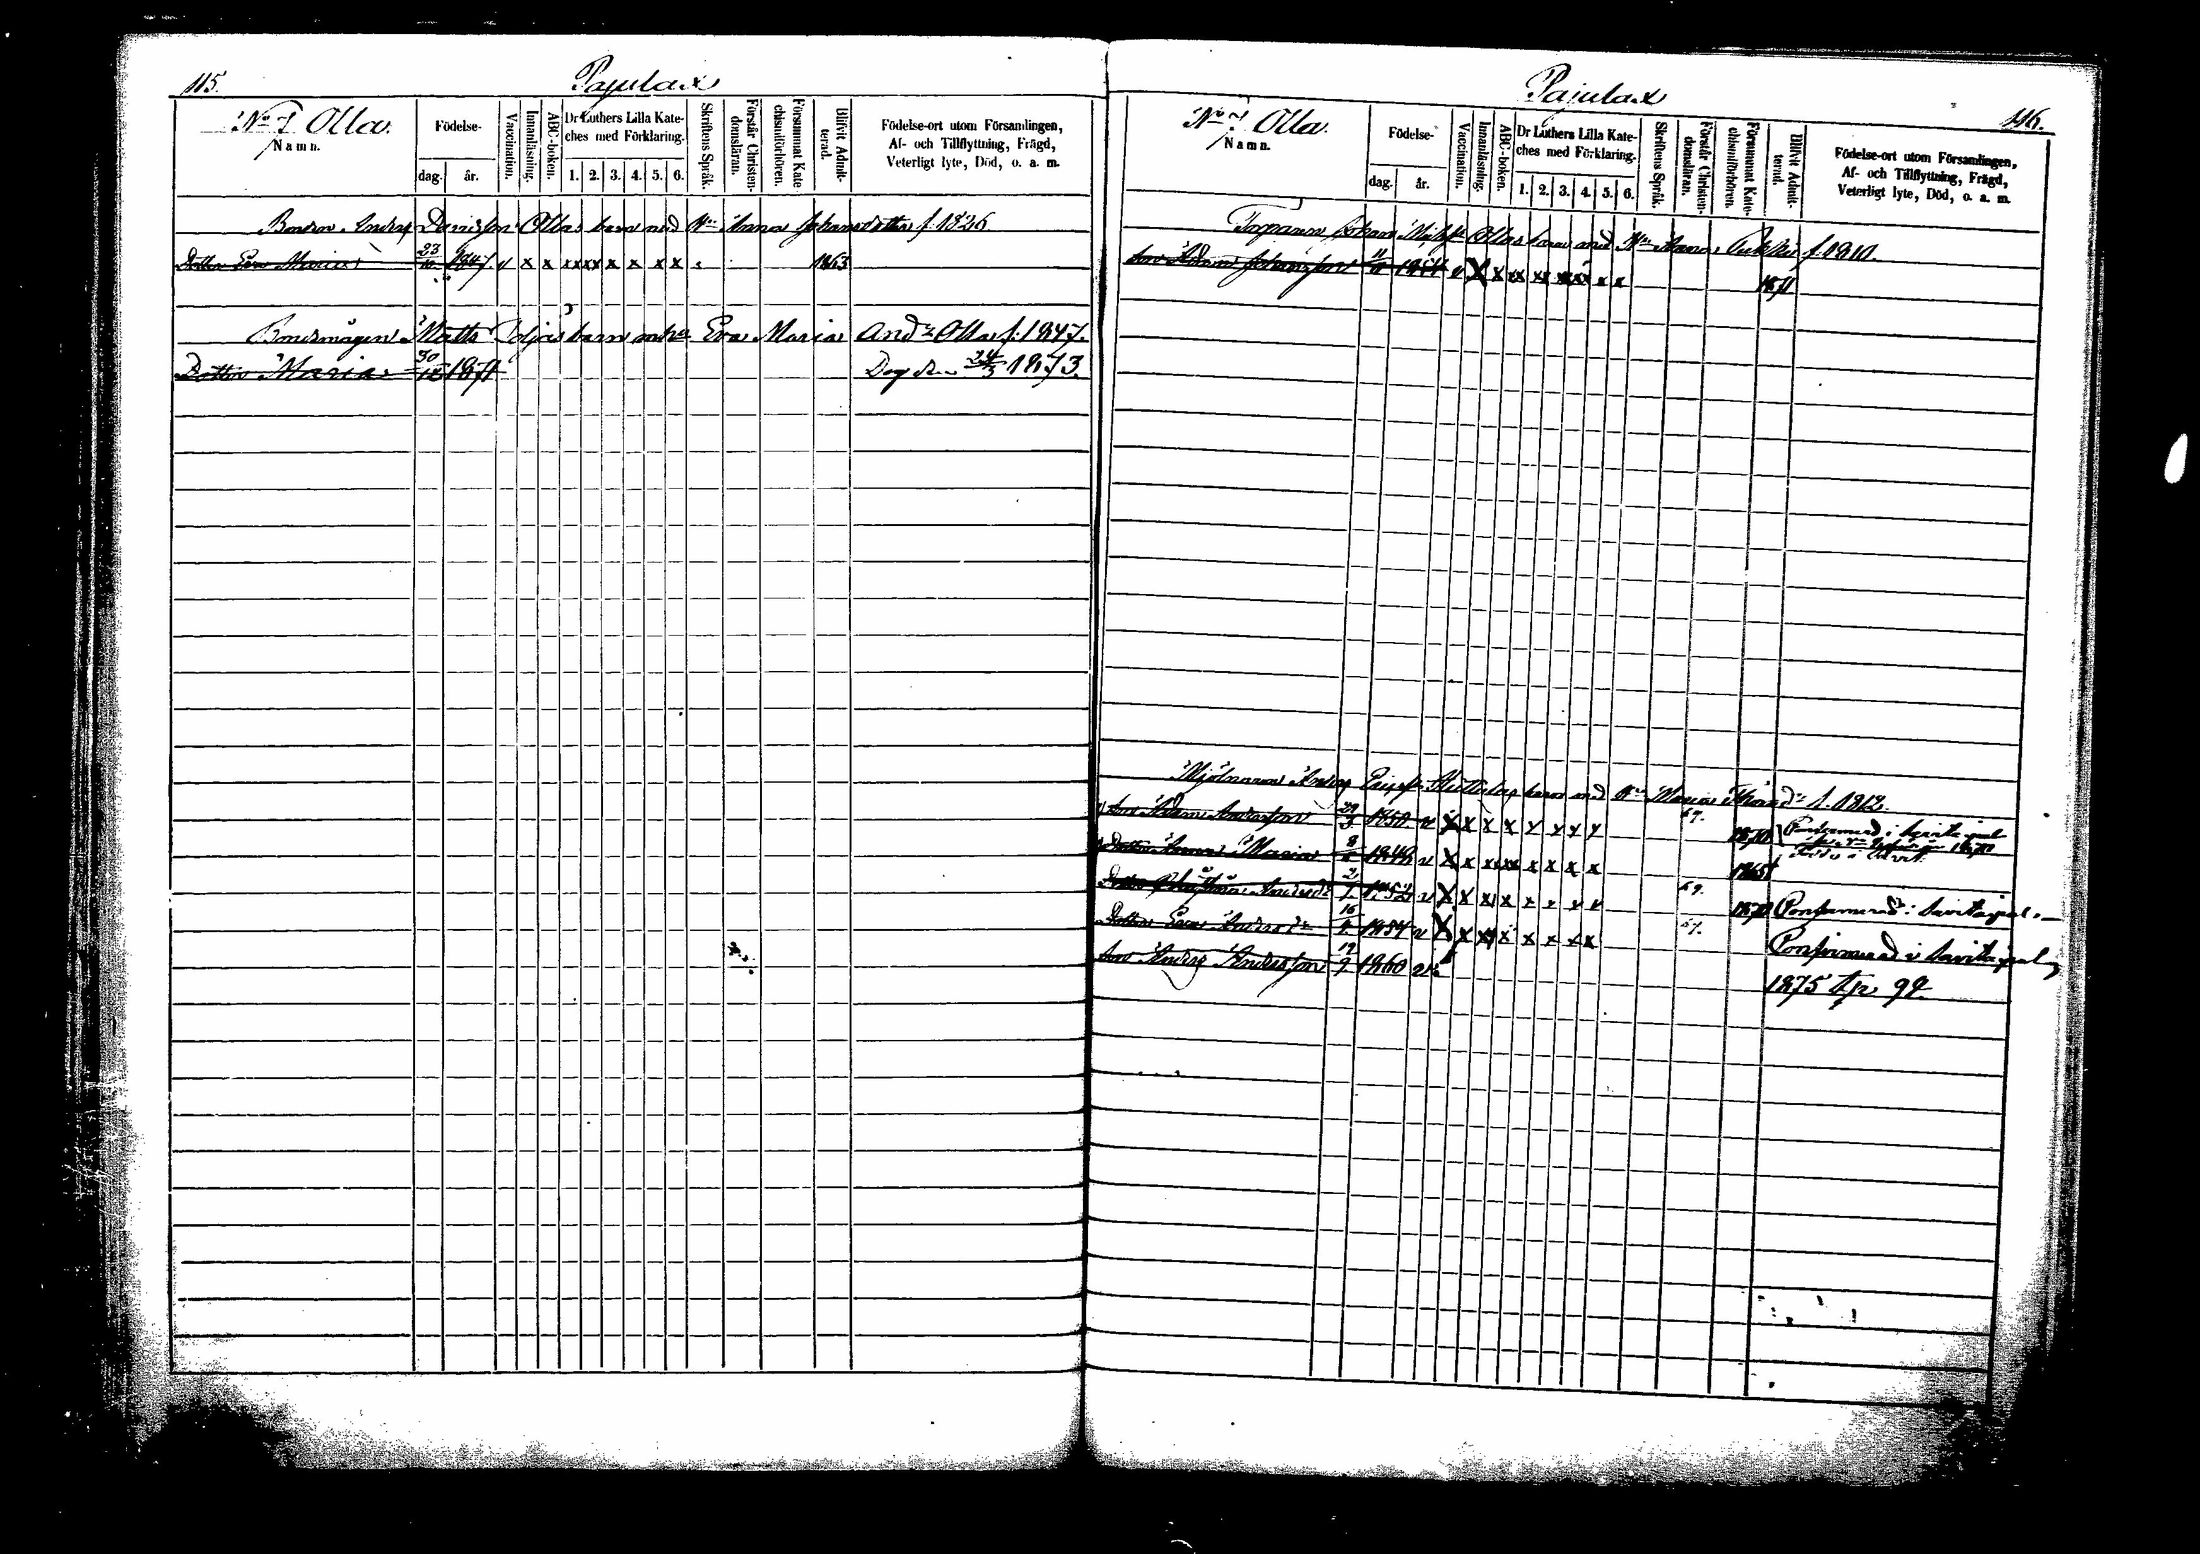 115.
Pajulax
No 7 Olla.
Namn.
Födelse-
dag. år.
Vaccination.
Innanläsning.
ABC-boken.
Dr Luthers Lilla Kate-
ches med Förklaring.
1. 2. 3. 4. 5. 6.
Skriftens Språk.
Förstår Christen-
domsläran.
Försummat Kate
chismiförhören.
Blifvit Admit-
terad.
Födelse-ort utom Församlingen,
Af- och Tillflyttning, Frägd,
Veterligt lyte, Död, o. a. m.
Bonden Anders Danielsson Ollas barn med Hu Anna Johansdotter f. 1826
Dotter Eva Maria 23/10 1847 v x x xx xx x x x x 1863
Bondemågen Matts barn m. hu Eva Maria And:dr Olla f. 1847.
Dotter Maria 30/12 1871 Död d. 24/3 1873.
Pajulax
116.
No 7 Olla.
Namn.
Födelse-
dag. år.
Vaccination.
Innanläsning.
ABC-boken.
Dr Luthers Lilla Kate-
ches med Förklaring.
1. 2. 3. 4. 5. 6.
Skriftens Språk.
Förstår Christen-
domsläran.
Försummat Kate-
chismiförhören.
Blifvit Admit-
terad.
Födelse-ort utom Församlingen,
Af- och Tillflyttning, Frägd,
Veterligt lyte, Död, o. a. m.
Torparen Johan Ollas barn med Hu Anna f. 1810
Son Adam Johansson 1854 v x x xx xx xx x x 1871
Mjölnaren Anders barn med Hu Maria f. 1812
Son Adam Andersson 29/3 1850 v x x x x x x x x 67. 1870 Confirmerad i Savitaipal
1870
Dotter Anna Maria 8 1848 v x x xx xx x x x x 1865
Dotter Andersdr 2/1 1852 v x x xx x x x x x 69. 1870 Confirmerad i Savitaipal
Dotter Eva Andersdr 16 1857 v x x xx x x x x x 67. Confirmerad i Savitaipal
Son Anders Andersson 19/9 1860 v
1875 99.